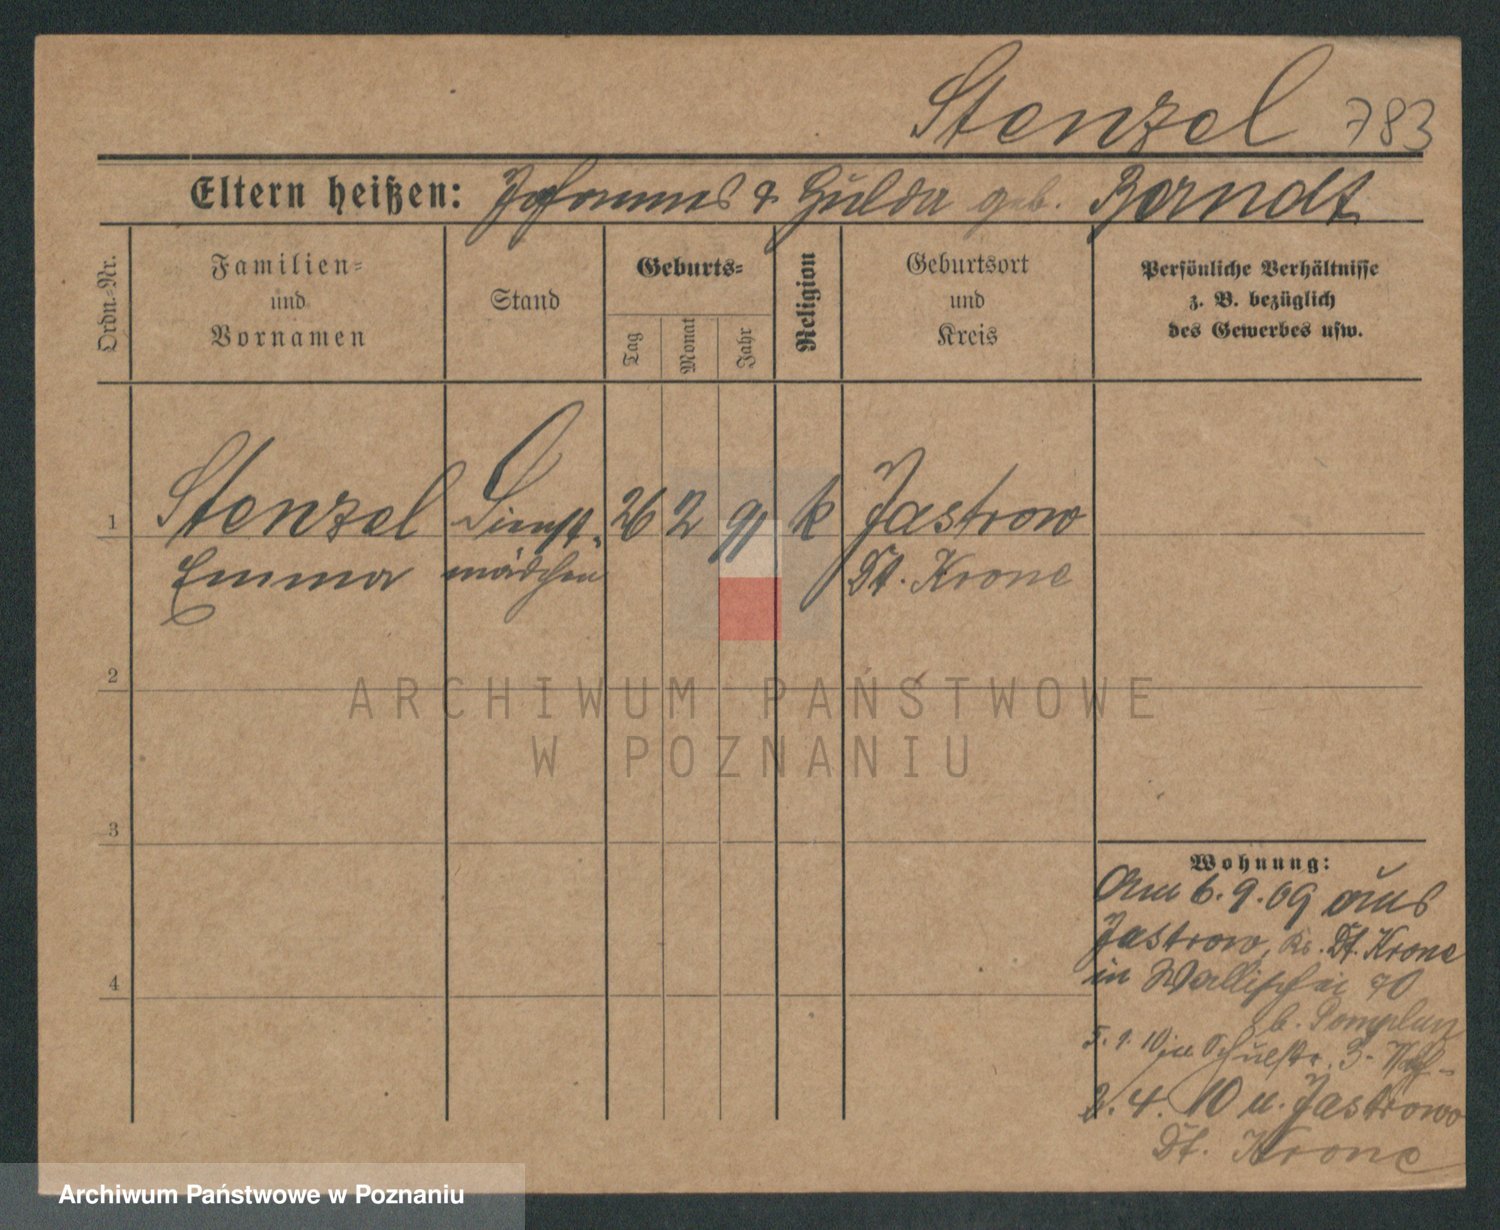 Stenzel 783
Eltern heißen: Johannes & Hulda geb. Berndt
Ordn.-Nr.
Familien-
und
Vornamen
Stand
Geburts-
Tag
Monat
Jahr
Religion
Geburtsort
und
Kreis
Persönliche Verhältnisse
z. B. bezüglich
des Gewerbes usw.
1 Stenzel Dienst- 26 2 91 k Jastrow
Emma mädchen Dt. Krone
2
ARCHIWUM PAŃSTWOWE
W POZNANIU
3
Wohnung:
Am 6.9.09 aus
Jastrow, Kr. Dt. Krone
4
in Wallischei 70
b. Pomplun
5.1.10 in Schulstr. 3
2.4.10 n. Jastrow
Dt. Krone
Archiwum Państwowe w Poznaniu